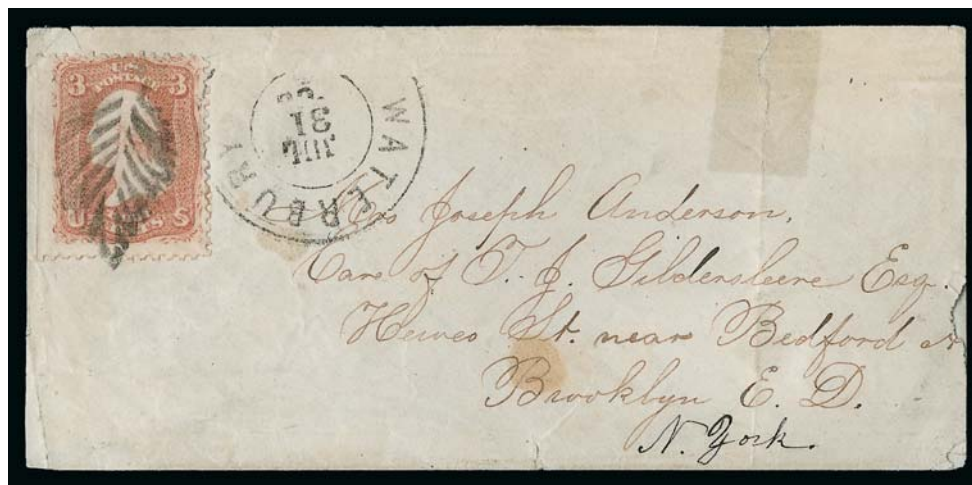 3 U.S. 3
POSTAGE
U CENTS S
WATERBURY
JUL
31
Mrs Joseph Anderson,
Care of T. J. Gildersleeve Esq.
Hewes St. near Bedford
Brooklyn E. D.
N. York.